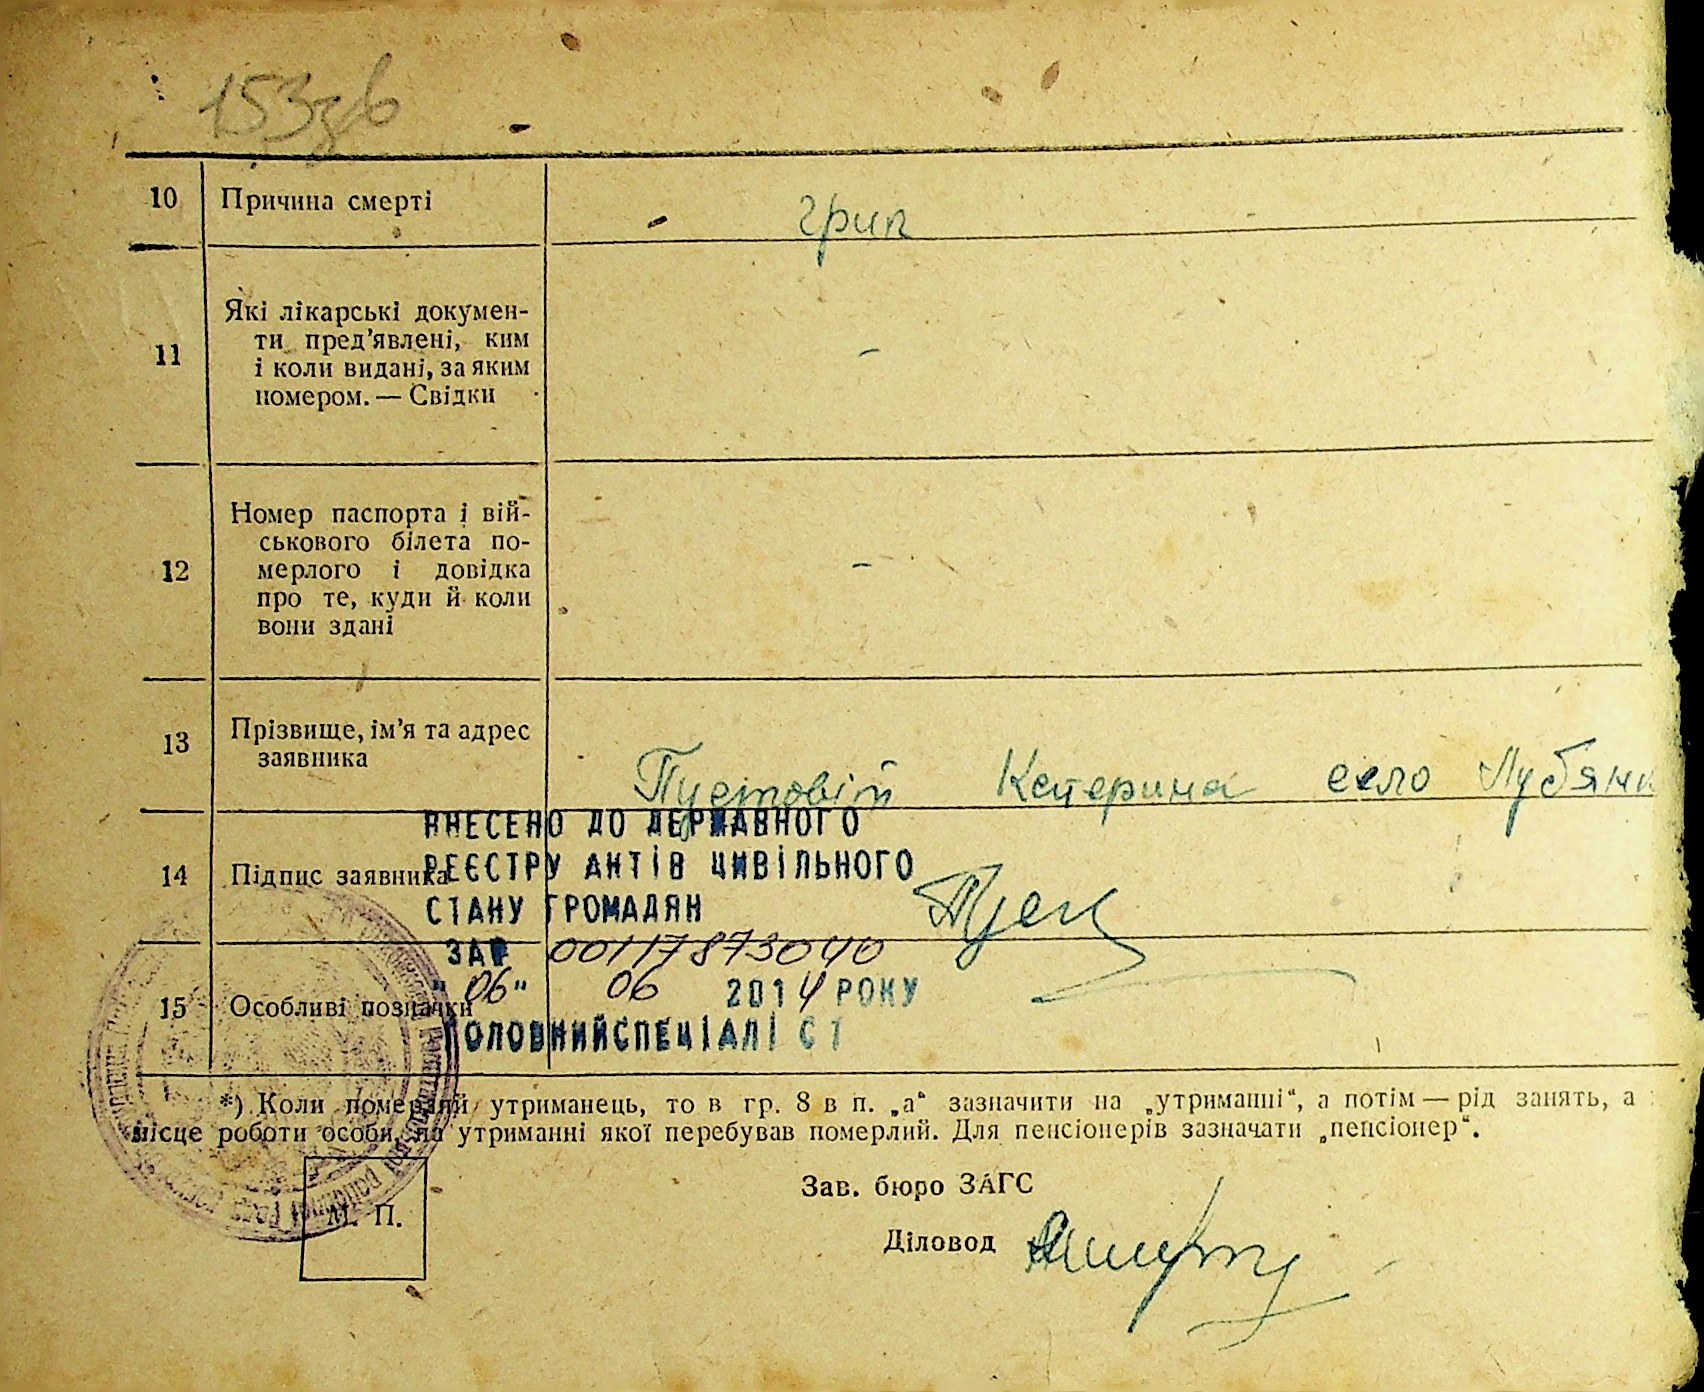 153зв
10 Причина смерті грип
11 Які лікарські докумен-
ти пред’явлені, ким
і коли видані, за яким
номером. — Свідки –
12 Номер паспорта і вій-
ськового білета по-
мерлого і довідка
про те, куди й коли
вони здані –
13 Прізвище, ім’я та адрес
заявника Пустовій Катерина село Лубянк
ВНЕСЕНО ДО ДЕРЖАВНОГО
14 Підпис заявника
РЕЄСТРУ АКТІВ ЦИВІЛЬНОГО
СТАНУ ГРОМАДЯН
ЗА № 00117873040
"06" 06 2014 РОКУ
15 Особливі позначки
ГОЛОВНИЙ СПЕЦІАЛІСТ
*) Коли померлий утриманець, то в гр. 8 в п. „а“ зазначити на „утриманні“, а потім — рід занять, а
місце роботи особи, на утриманні якої перебував померлий. Для пенсіонерів зазначати „пенсіонер“.
Зав. бюро ЗАГС
М. П.
Діловод